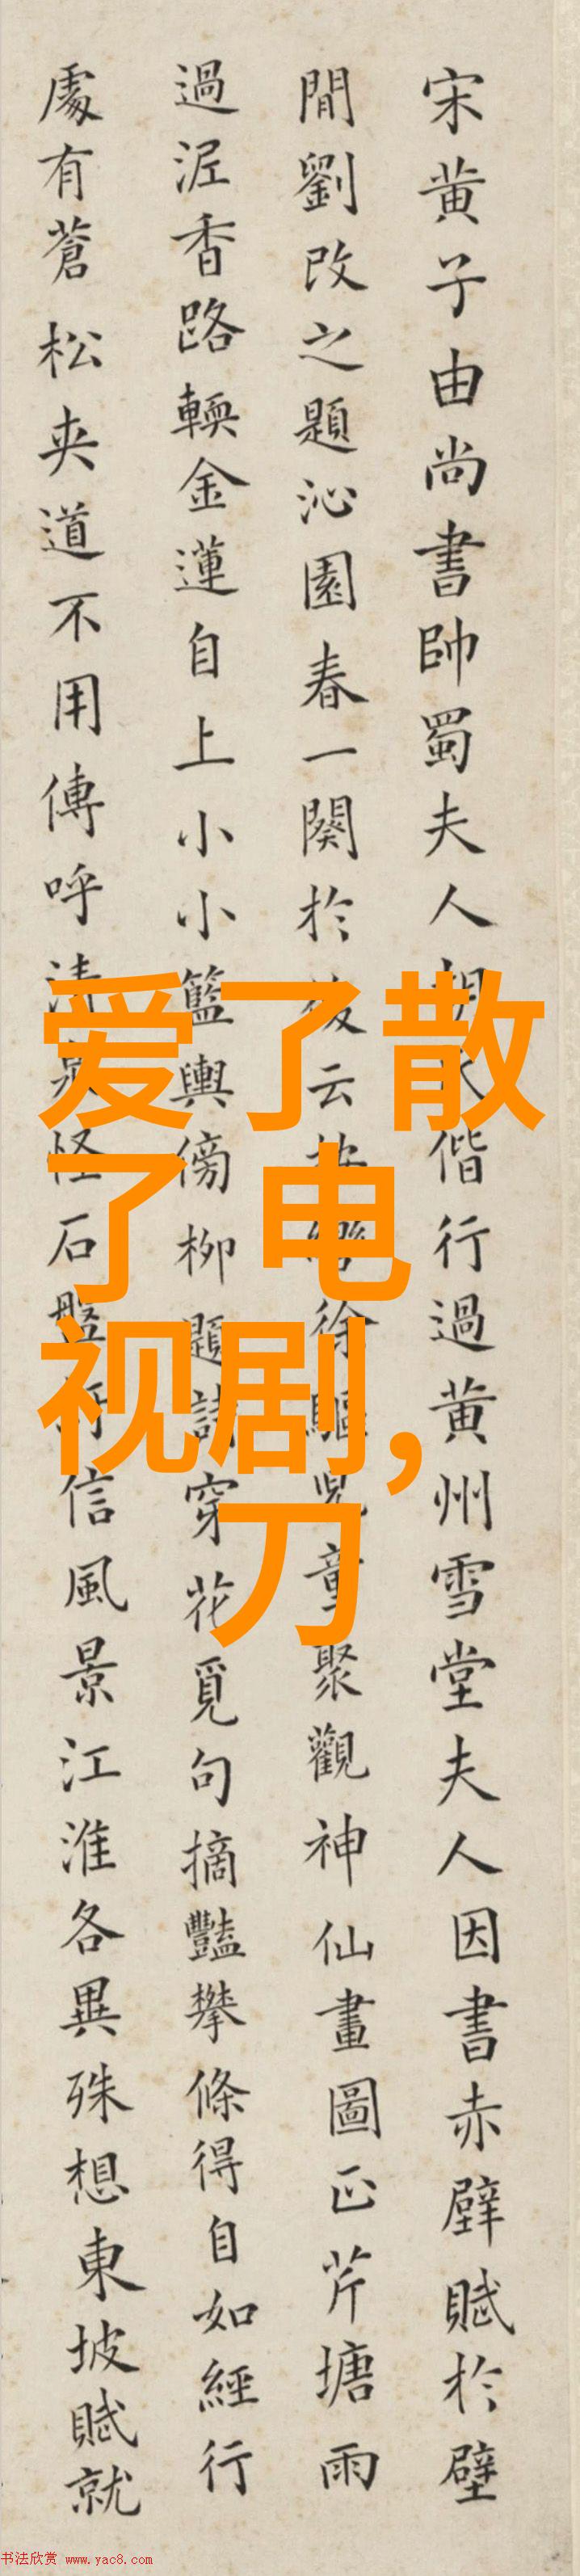 宋黄子由尚書帥蜀夫人胡氏偕行過黄州雪堂夫人因書赤壁賦於壁
間劉改之題沁園春一闋於後云按轡徐驅兒童聚觀神仙畫圖正芹塘雨
過泥香路輭金蓮自上小小籃輿傍柳題詩穿花覓句摘豔攀條得自如經行
處有蒼松夾道不用傳呼清泉怪石盤紆信風景江淮各異殊想東坡賦就
爱了散
了 电
视剧,
刀
书法欣赏 www.yac8.com